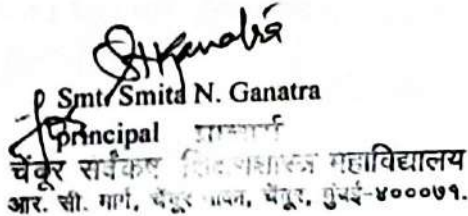 Smt. Smita N. Ganatra
Principal प्राचार्य
चेंबूर सर्वंकष शिक्षणशास्त्र महाविद्यालय
आर. सी. मार्ग, चेंबूर नाका, चेंबूर, मुंबई-४०००७१.